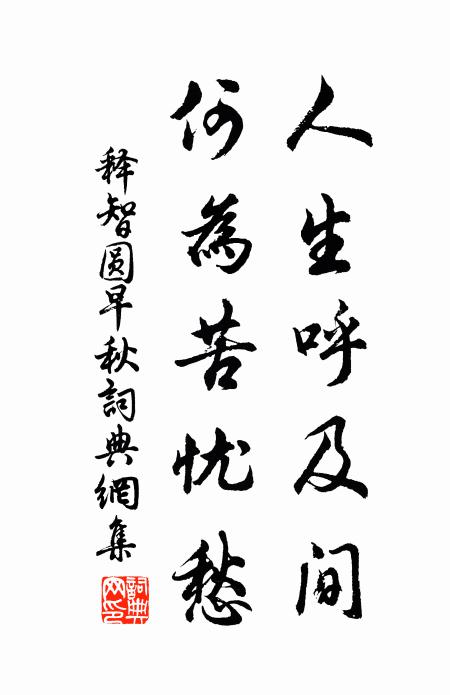 人生呼及间
何為苦忧愁
释智圆早秋詞典網集
詞典網印